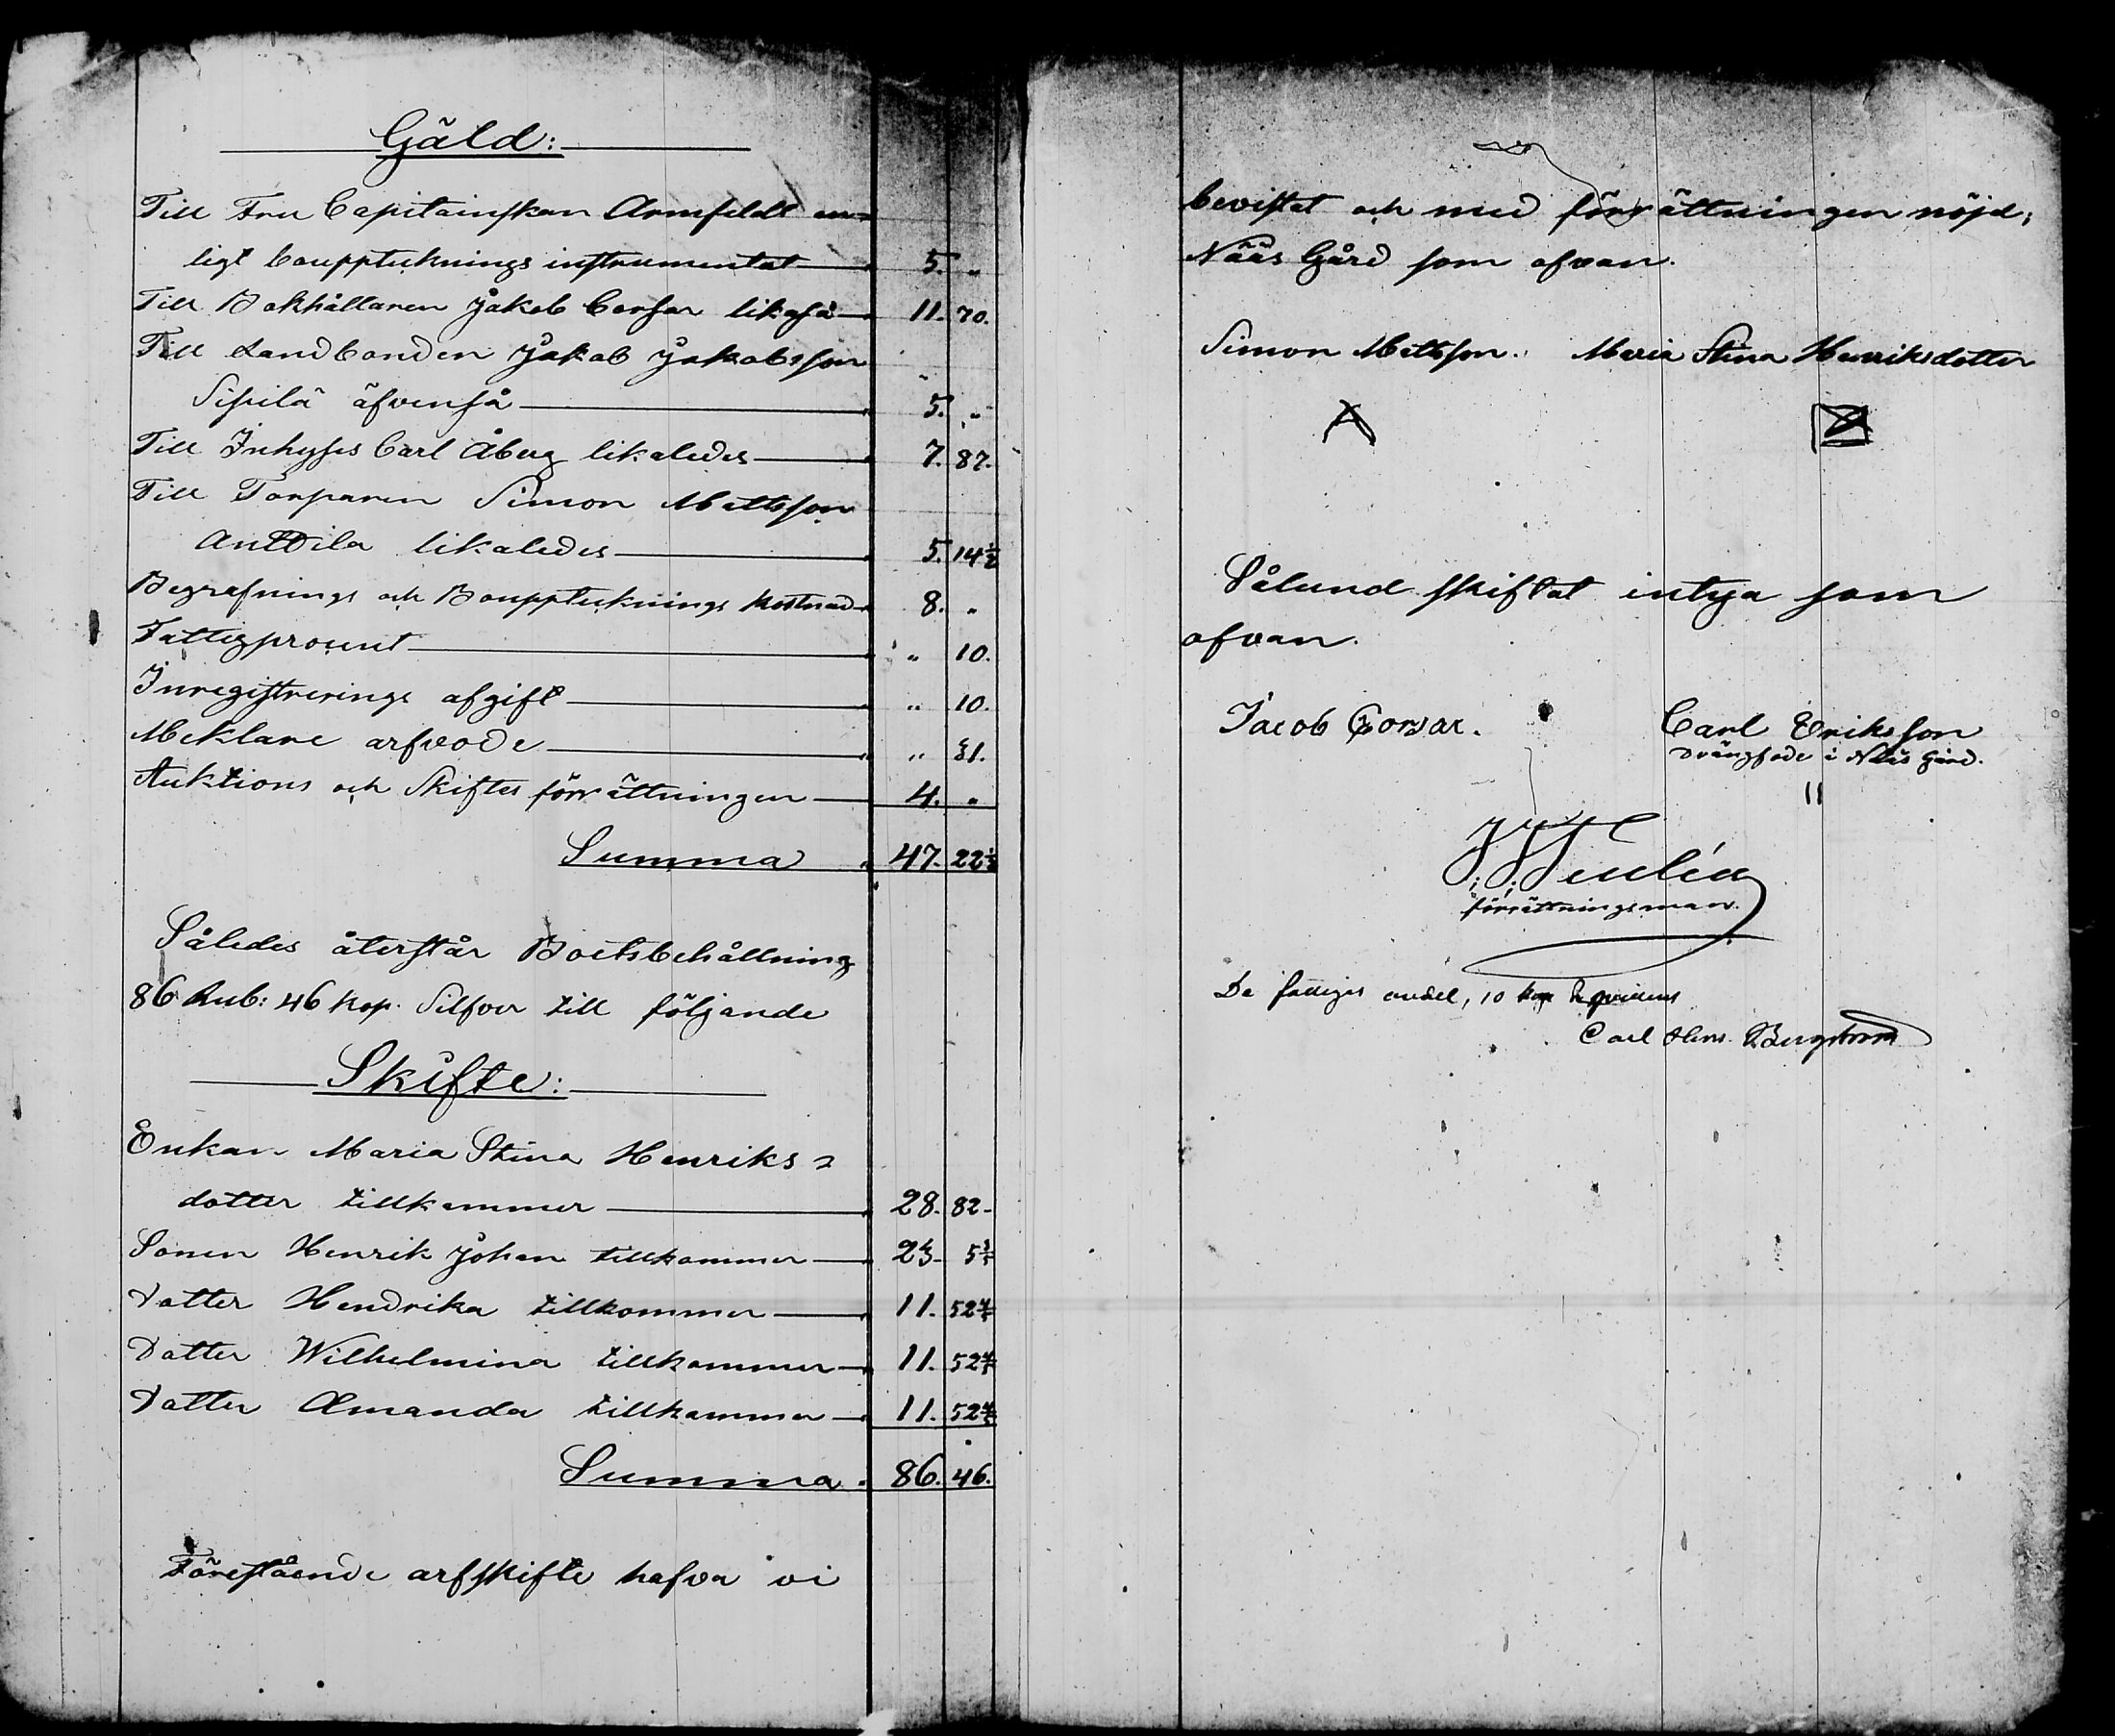 Gäld:
Till Fru Capitainskan Armfeldt en=
ligt bouppteknings instrumentet 5. "
Till Bokhållaren Jakob Corsar likaså 11. 70.
Till Landbonden Jakob Jakobsson
Sipilä äfvenså 5. "
Till Inhyses Carl Åberg likaledes 7. 87.
Till Torparen Simon Mattsson
Anttila likaledes 5. 14½
Begrafnings och Bouppteknings kostnad 8. "
Fattigprocent " 10.
Inregistrerings afgift " 10.
Meklare arfvode " 31.
Auktions och Skiftes förrättningen 4. "
Summa 47. 22½
Således återstår Boetsbehållning
86 Rub: 46 Kop. Silfver till följande
Skifte:
Enkan Maria Stina Henriks=
dotter tillkommer 28. 82-
Sonen Henrik Johan tillkommer 23- 5 3/5
Dotter Hendrika tillkommer 11. 52 4/5
Dotter Wilhelmina tillkommer 11. 52 4/5
Dotter Amanda tillkommer 11. 52 4/5
Summa 86. 46.
Förestående arfskifte hafva vi
bevistat och med förrättningen nöjd;
Nääs Gård som ofvan.
Simon Mattsson. Maria Stina Henriksdotter
Sålund skiftat intyga som
ofvan.
Jacob Corsar. Carl Eriksson
Drängfode i Nääs Gård.
förrättningsman.
De fattiges andel, 10 kop
Carl Bergstrom